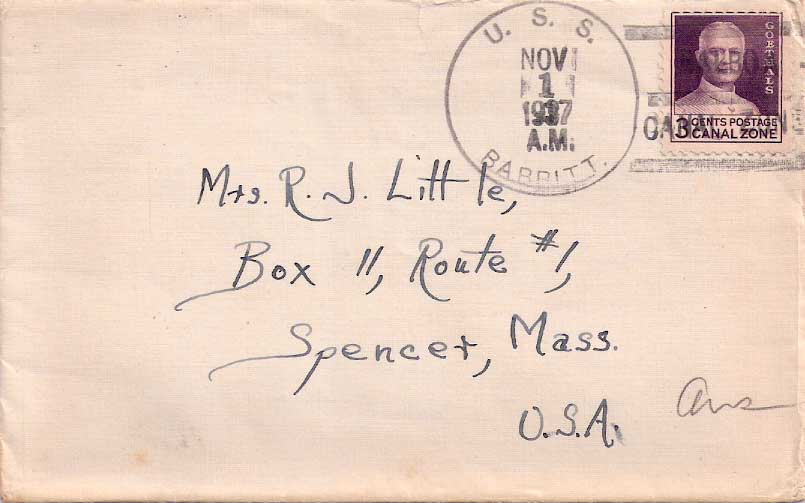 U. S. S.
NOV
1
1937
A.M.
BABBITT.
GOETHALS
3 CENTS POSTAGE
CANAL ZONE
Mrs. R. J. Little,
Box 11, Route #1,
Spencer, Mass.
U.S.A.
Ans